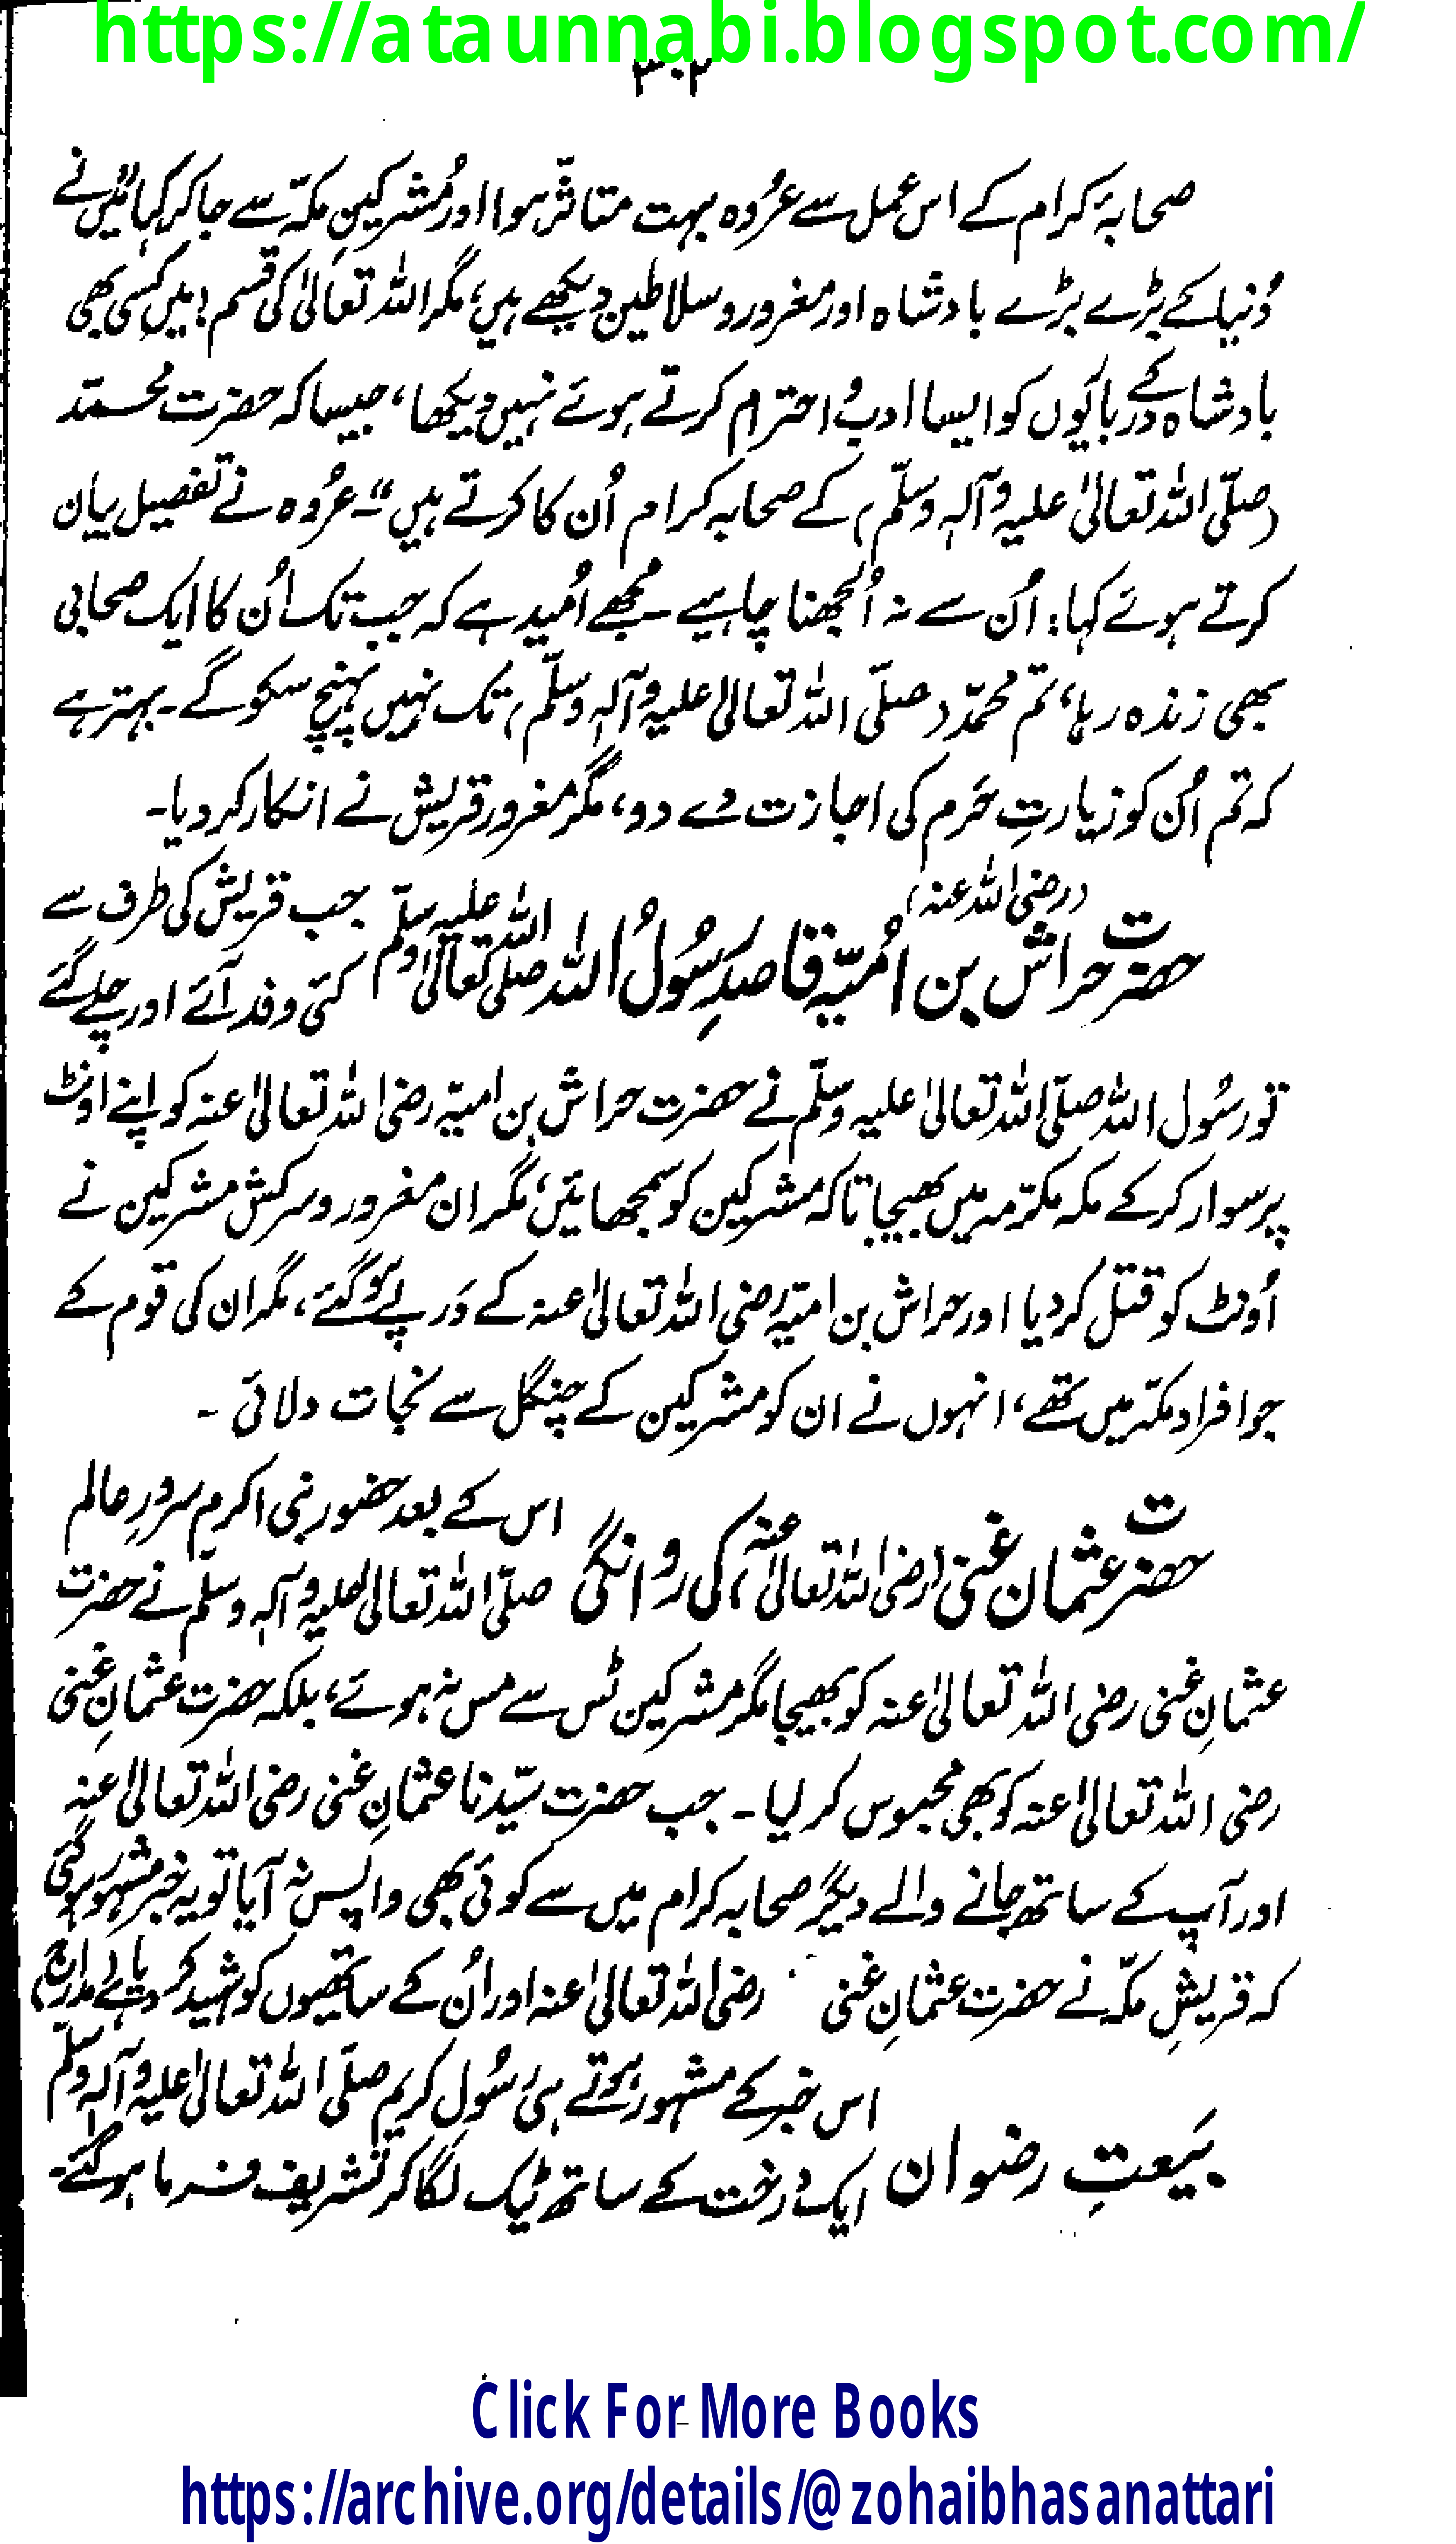 https://ataunnabi.blogspot.com/
۳۰۲
صحابۂ کرام کے اس عمل سے عُروہ بہت متاثّر ہوا اور مُشرکینِ مکّہ سے جا کر کہا "میں نے
دُنیا کے بڑے بڑے بادشاہ اور مغرور و سلاطین دیکھے ہیں، مگر اللہ تعالیٰ کی قسم! میں کسی بھی
بادشاہ کے درباریوں کو ایسا ادب و احترام کرتے ہوئے نہیں دیکھا، جیسا کہ حضرت محمّد
(صلّی اللہ تعالیٰ علیہ وآلہٖ وسلّم) کے صحابہ کرام اُن کا کرتے ہیں"۔ عُروہ نے تفصیل بیان
کرتے ہوئے کہا: اُن سے نہ اُلجھنا چاہیے۔ مجھے اُمید ہے کہ جب تک اُن کا ایک صحابی
بھی زندہ رہا، تم محمّد (صلّی اللہ تعالیٰ علیہ وآلہٖ وسلّم) تک نہیں پہنچ سکو گے۔ بہتر ہے
کہ تم اُن کو زیارتِ حَرم کی اجازت دے دو، مگر مغرور قریش نے انکار کر دیا۔
حضرت حراش بن اُمیّہ (رضی اللہ عنہ) قاصدِ رسُولُ اللہ صلی اللہ تعالیٰ علیہ وسلّم
جب قریش کی طرف سے
کئی وفد آئے اور چلے گئے
تو رسُول اللہ صلّی اللہ تعالیٰ علیہ وسلّم نے حضرت حراش بن امیّہ رضی اللہ تعالیٰ عنہ کو اپنے اونٹ
پر سوار کر کے مکہ مکرّمہ میں بھیجا تاکہ مشرکین کو سمجھائیں، مگر ان مغرور و سرکش مشرکین نے
اُونٹ کو قتل کر دیا اور حراش بن امیّہ رضی اللہ تعالیٰ عنہ کے دَر پے ہو گئے، مگر ان کی قوم کے
جو افراد مکّہ میں تھے، انہوں نے ان کو مشرکین کے چنگل سے نجات دلائی۔
حضرت عثمان غنی (رضی اللہ تعالیٰ عنہ) کی روانگی
اس کے بعد حضور نبی اکرم سرورِ عالم
صلّی اللہ تعالیٰ علیہ وآلہٖ وسلّم نے حضرت
عثمانِ غنی رضی اللہ تعالیٰ عنہ کو بھیجا مگر مشرکین ٹس سے مس نہ ہوئے، بلکہ حضرت عثمانِ غنی
رضی اللہ تعالیٰ عنہ کو بھی محبوس کر لیا۔ جب حضرت سیّدنا عثمانِ غنی رضی اللہ تعالیٰ عنہ
اور آپ کے ساتھ جانے والے دیگر صحابہ کرام میں سے کوئی بھی واپس نہ آیا تو یہ خبر مشہور ہو گئی
کہ قریشِ مکّہ نے حضرت عثمانِ غنی رضی اللہ تعالیٰ عنہ اور اُن کے ساتھیوں کو شہید کر دیا ہے
بَیعتِ رضوان
اس خبر کے مشہور ہوتے ہی رسُولِ کریم صلّی اللہ تعالیٰ علیہ وآلہٖ وسلّم
ایک درخت کے ساتھ ٹیک لگا کر تشریف فرما ہو گئے۔
Click For More Books
https://archive.org/details/@zohaibhasanattari